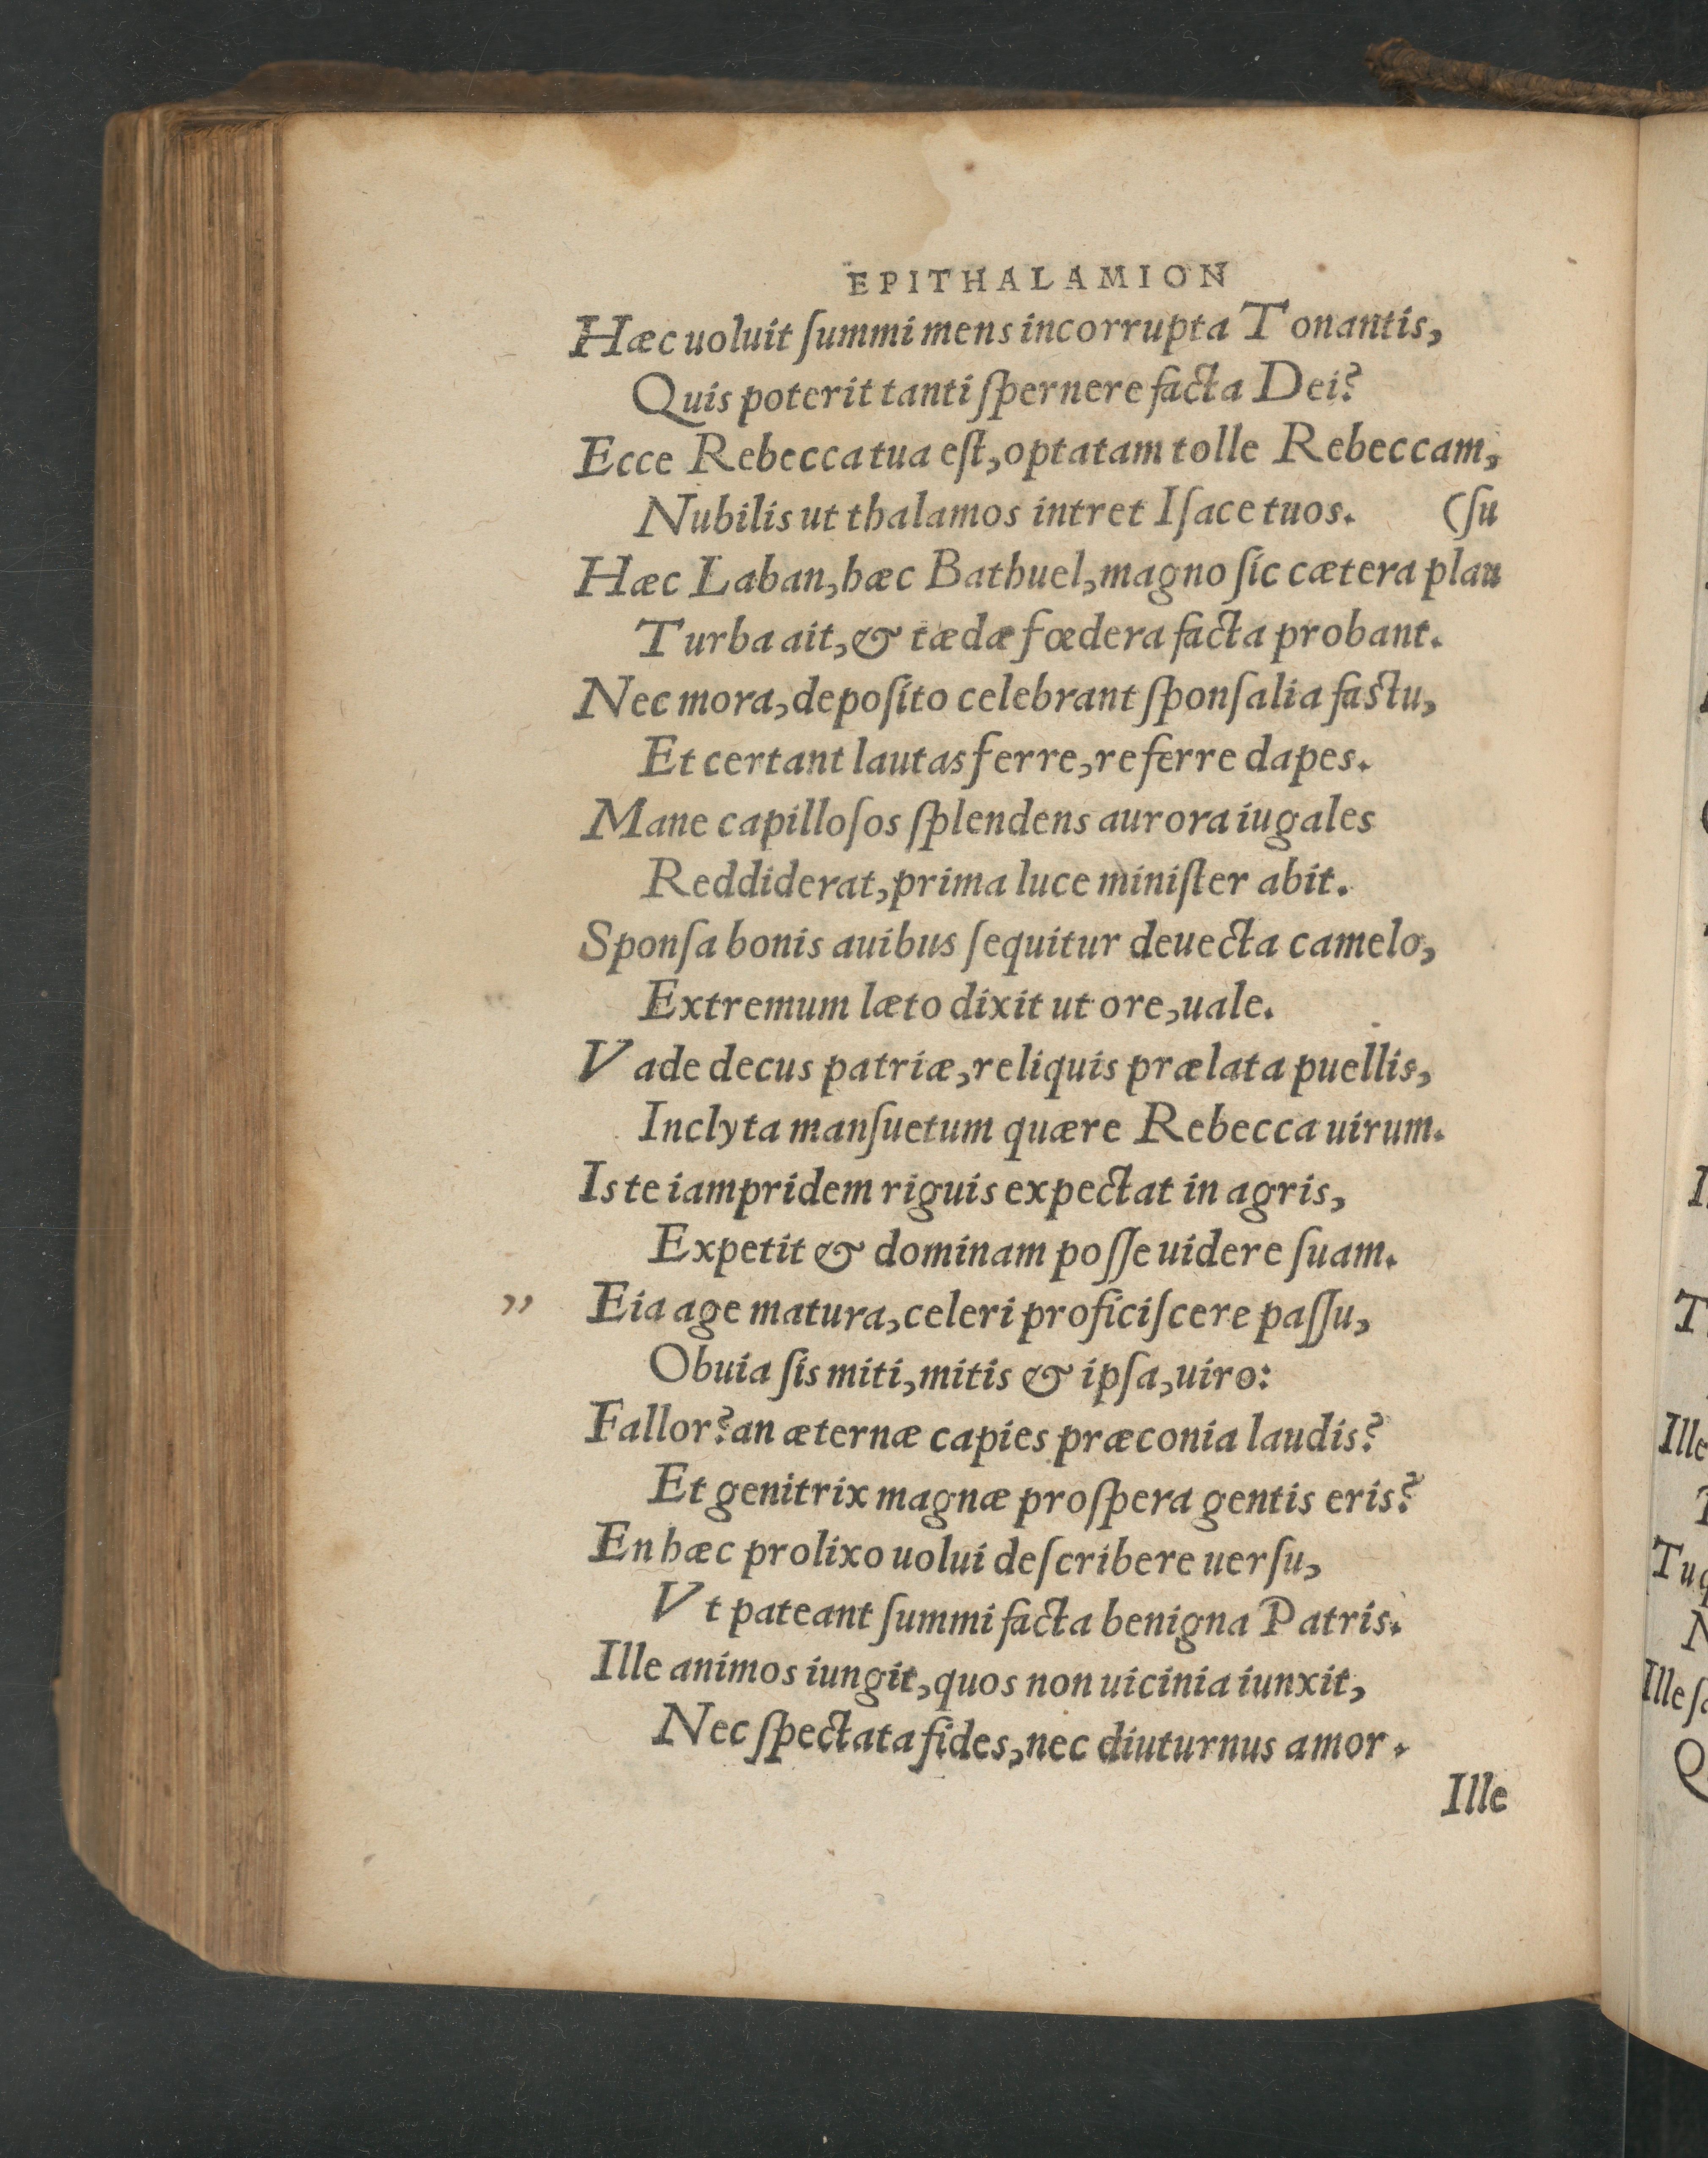 EPITHALAMION
Hæc uoluit ſummi mens incorrupta Tonantis,
Quis poterit tanti ſpernere facta Dei?
Ecce Rebecca tua eſt, optatam tolle Rebeccam,
Nubilis ut thalamos intret Iſace tuos. (ſu
Hæc Laban, hæc Bathuel, magno ſic cætera plau
Turba ait, & tædæ fœdera facta probant.
Nec mora, depoſito celebrant ſponſalia faſtu,
Et certant lautas ferre, referre dapes.
Mane capilloſos ſplendens aurora iugales
Reddiderat, prima luce miniſter abit.
Sponſa bonis auibus ſequitur deuecta camelo,
Extremum læto dixit ut ore, uale.
Vade decus patriæ, reliquis prælata puellis,
Inclyta manſuetum quære Rebecca uirum.
Is te iampridem riguis expectat in agris,
Expetit & dominam poſſe uidere ſuam.
” Eia age matura, celeri proficiſcere paſſu,
Obuia ſis miti, mitis & ipſa, uiro:
Fallor? an æternæ capies præconia laudis?
Et genitrix magnæ proſpera gentis eris?
En hæc prolixo uolui deſcribere uerſu,
Vt pateant ſummi facta benigna Patris.
Ille animos iungit, quos non uicinia iunxit,
Nec ſpectata fides, nec diuturnus amor.
Ille
Ille
Tuq
Ille ſa